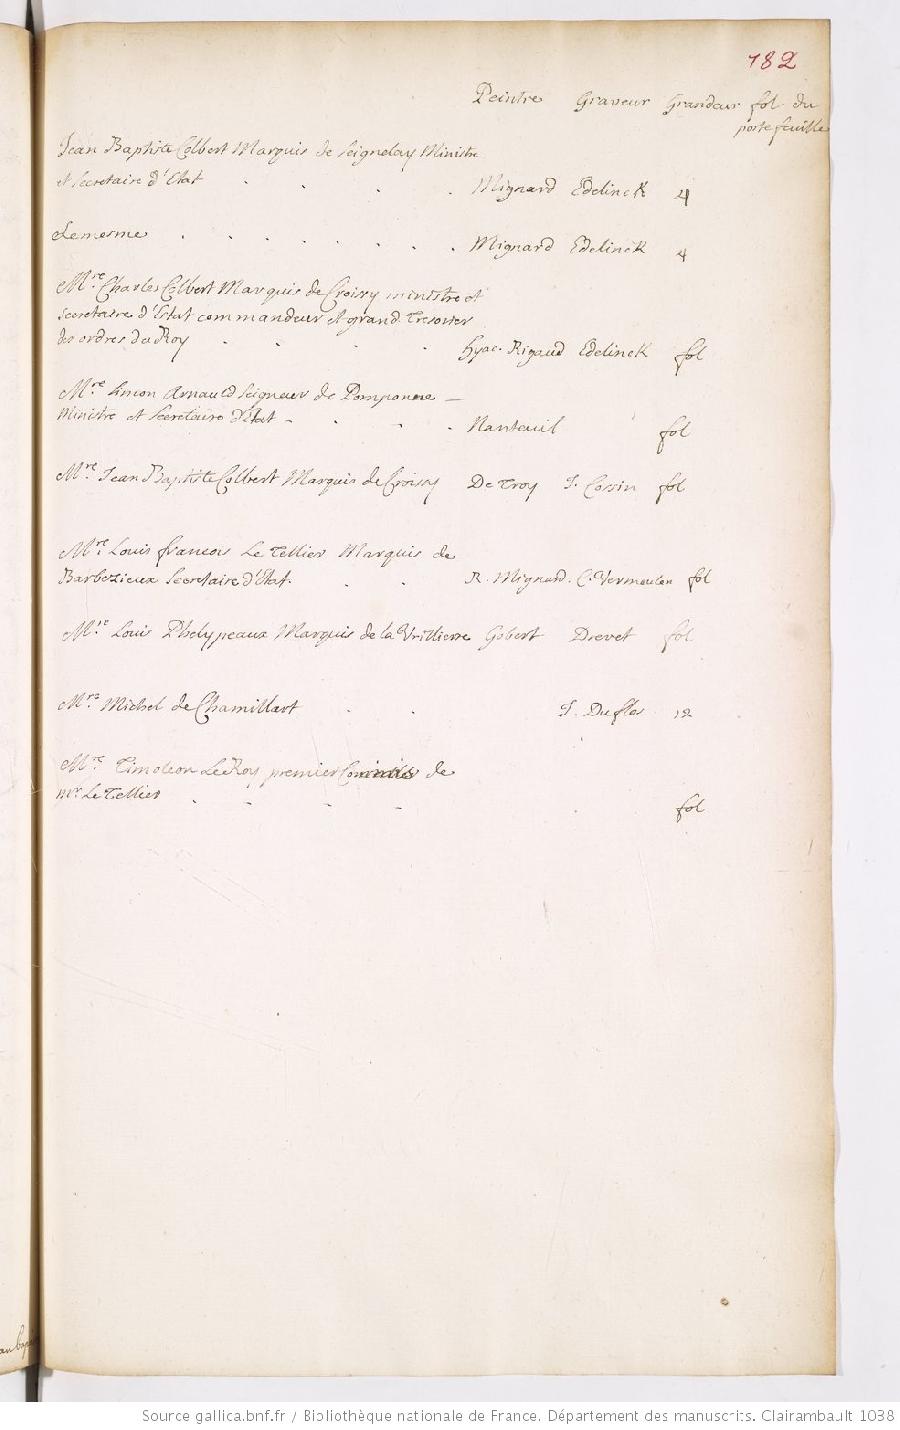 182
Peintre Graveur Grandeur fol. du
porte feuille
Jean Baptiste Colbert Marquis de Seignelay Ministre
et Secretaire d'Etat . . . . Mignard Edelinck 4
Le mesme . . . . . . . . Mignard Edelinck 4
Mre. Charles Colbert Marquis de Croissy ministre et
Secretaire d'Estat commandeur et grand Tresorier
des ordres du Roy . . . . hyac. Rigaud Edelinck fol
Mre. Simon Arnauld Seigneur de Pomponne —
Ministre et Secretaire d'Etat - . - . Nanteuil fol
Mre. Jean Baptiste Colbert Marquis de Croissy De Troy J. Cossin fol
Mre. Louis francois Le Tellier Marquis de
Barbezieux Secretaire d'Etat. . . Mignard. C. Vermeulen fol
Mre. Louis Phelypeaux Marquis de la Vrilliere Gobert Drevet fol
Mre. Michel de Chamillart . . J. Dufles 12
Mre. Timoleon Le Roy premier Commis de
Mr Le Tellier . - - - fol
Source gallica.bnf.fr / Bibliothèque nationale de France. Département des manuscrits. Clairambault 1038